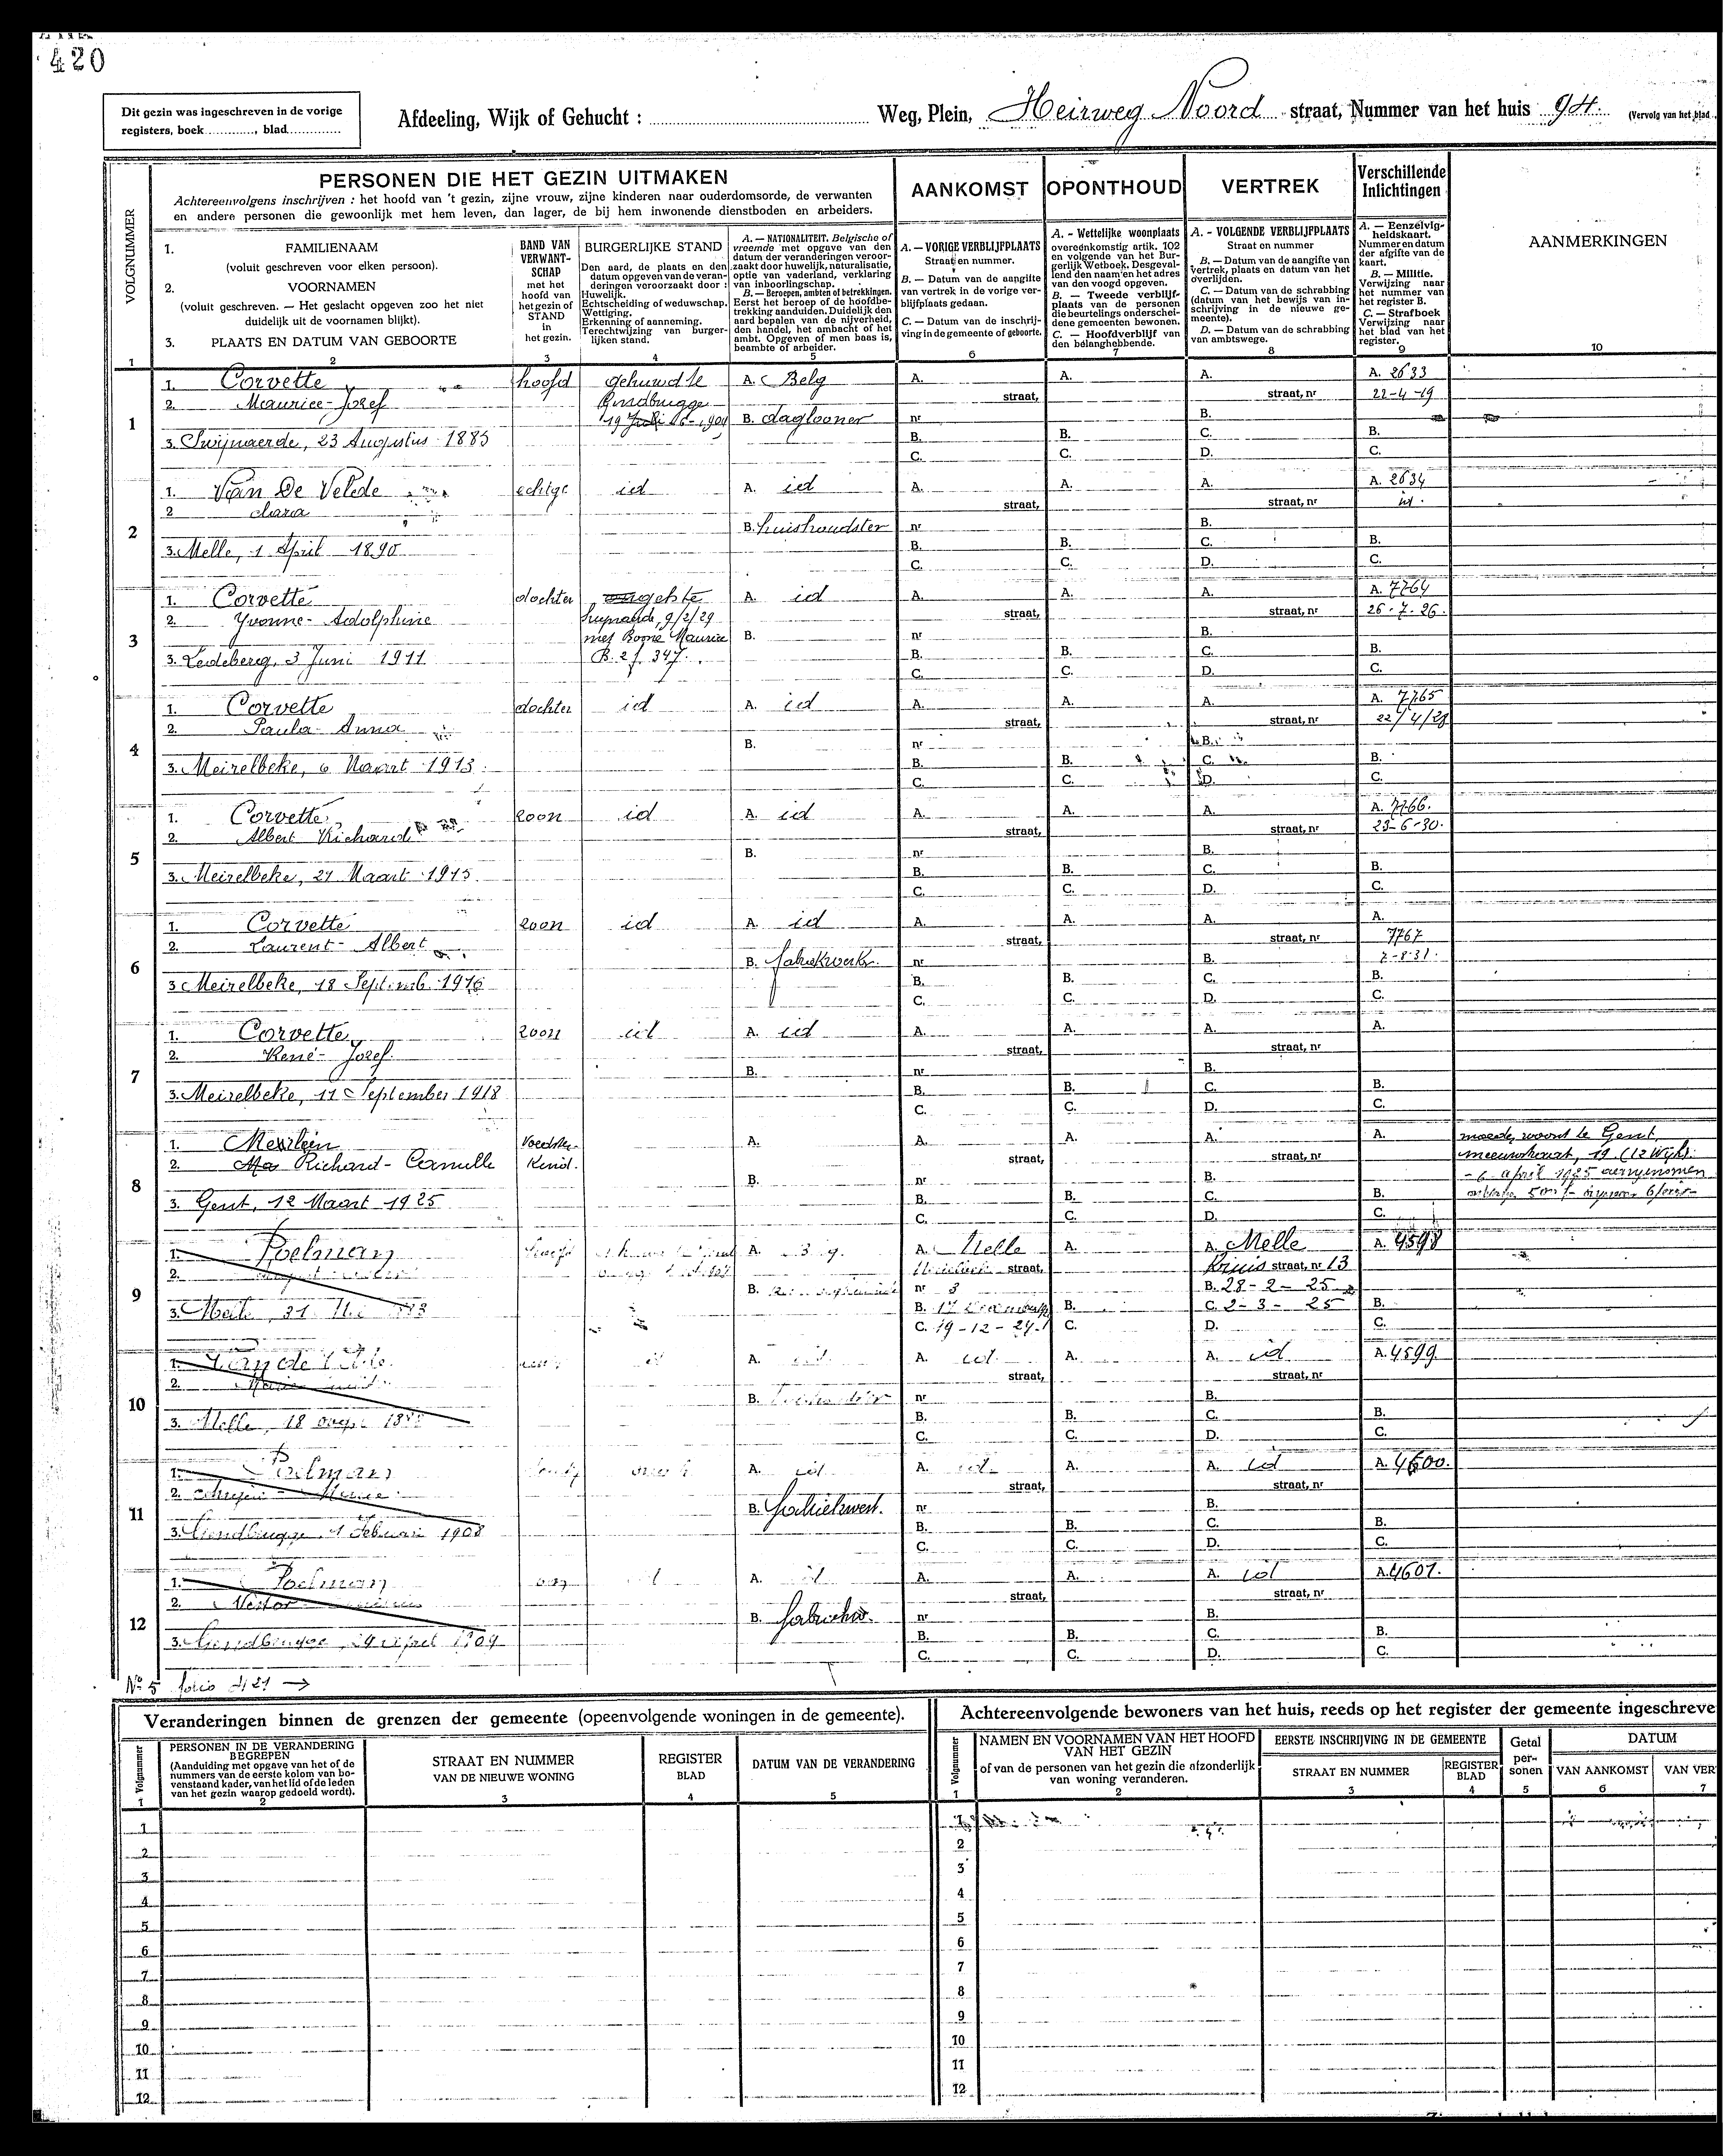 420
Dit gezin was ingeschreven in de vorige
registers, boek ............, blad............
Afdeeling, Wijk of Gehucht :
Weg, Plein, Heirweg Noord straat, Nummer van het huis 94. (Vervolg van het blad
VOLGNUMMER
PERSONEN DIE HET GEZIN UITMAKEN
Achtereenvolgens inschrijven : het hoofd van 't gezin, zijne vrouw, zijne kinderen naar ouderdomsorde, de verwanten
en andere personen die gewoonlijk met hem leven, dan lager, de bij hem inwonende dienstboden en arbeiders.
1. FAMILIENAAM
(voluit geschreven voor elken persoon).
2. VOORNAMEN
(voluit geschreven. — Het geslacht opgeven zoo het niet
duidelijk uit de voornamen blijkt).
3. PLAATS EN DATUM VAN GEBOORTE
BAND VAN
VERWANT-
SCHAP
met het
hoofd van
het gezin of
STAND
in
het gezin.
BURGERLIJKE STAND
Den aard, de plaats en den
datum opgeven van de veran-
deringen veroorzaakt door :
Huwelijk.
Echtscheiding of weduwschap.
Wettiging.
Erkenning of aanneming.
Terechtwijzing van burger-
lijken stand.
A. — NATIONALITEIT. Belgische of
vreemde met opgave van den
datum der veranderingen veroor-
zaakt door huwelijk, naturalisatie,
optie van vaderland, verklaring
van inboorlingschap.
B. — Beroepen, ambten of betrekkingen.
Eerst het beroep of de hoofdbe-
trekking aanduiden. Duidelijk den
aard bepalen van de nijverheid,
den handel, het ambacht of het
ambt. Opgeven of men baas is,
beambte of arbeider.
AANKOMST
A. — VORIGE VERBLIJFPLAATS
Straat en nummer.
B. — Datum van de aangifte
van vertrek in de vorige ver-
blijfplaats gedaan.
C. — Datum van de inschrij-
ving in de gemeente of geboorte.
OPONTHOUD
A. - Wettelijke woonplaats
overeenkomstig artik. 102
en volgende van het Bur-
gerlijk Wetboek. Desgeval-
lend den naam en het adres
van den voogd opgeven.
B. — Tweede verblijf-
plaats van de personen
die beurtelings onderschei-
dene gemeenten bewonen.
C. — Hoofdverblijf van
den belanghebbende.
VERTREK
A. - VOLGENDE VERBLIJFPLAATS
Straat en nummer
B. — Datum van de aangifte van
vertrek, plaats en datum van het
overlijden.
C. — Datum van de schrabbing
(datum van het bewijs van in-
schrijving in de nieuwe ge-
meente).
D. — Datum van de schrabbing
van ambtswege.
Verschillende
Inlichtingen
A. — Eenzelvig-
heidskaart.
Nummer en datum
der afgifte van de
kaart.
B. — Militie.
Verwijzing naar
het nummer van
het register B.
C. — Strafboek
Verwijzing naar
het blad van het
register.
AANMERKINGEN
1 2 3 4 5 6 7 8 9 10
1
1. Corvette hoofd gehuwd te A. Belg A. A. A. A. 2633
2. Maurice-Jozef straat, straat, nr 22-4-19
B. daglooner nr B.
3. Swijnaerde, 23 Augustus 1885 B. B. C. B.
C. C. D. C.
2
1. Van De Velede echtge id A. id A. A. A. A. 2634
2 Clara straat, straat, nr id.
B. huishoudster nr B.
3. Melle, 1 April 1890 B. B. C. B.
C. C. D. C.
3
1. Corvette dochter A. id A. A. A. A. 7764
2. Yvonne-Adolphine 9/2/29 straat, straat, nr 26-7-26.
met Boone Maurice B. nr B.
3. Ledeberg, 3 Juni 1911 B. 2 f. 347. B. B. C. B.
C. C. D. C.
4
1. Corvette dochter id A. id A. A. A. A. 7765
2. Paula-Anna straat, straat, nr 22/4/28
B. nr B.
3. Meirelbeke, 6 Maart 1913 B. B. C. B.
C. C. D. C.
5
1. Corvette zoon id A. id A. A. A. A. 7766.
2. Albert Richard straat, straat, nr 23-6-30.
B. nr B.
3. Meirelbeke, 21 Maart 1915 B. B. C. B.
C. C. D. C.
6
1. Corvette zoon id A. id A. A. A. A.
2. Laurent-Albert straat, straat, nr 7767
B. fabriekwerk. nr B. 2-8-31.
3 Meirelbeke, 18 Septemb. 1916 B. B. C. B.
C. C. D. C.
7
1. Corvette zoon id A. id A. A. A. A.
2. René-Jozef straat, straat, nr
B. nr B.
3. Meirelbeke, 11 September 1918 B. B. C. B.
C. C. D. C.
8
1. Voedster- A. A. A. A. A. moeder woont te Gent,
2. Richard-Camille Kind. straat, straat, nr 19 (12 Wijk).
B. nr B. 6 april 1925
3. Gent, 12 Maart 1925 B. B. C. B.
C. C. D. C.
9
1. Poelman hoofd A. A. Melle A. A. Melle A. 4598
2. straat, Kruis straat, nr 13
B. nr 3 B. 28-2-25
3. Melle, 31 B. B. C. 2-3-25 B.
C. 19-12-24. C. D. C.
10
1. Van de id A. id A. id. A. A. id A. 4599
2. straat, straat, nr
B. nr B.
3. Melle, 18 B. B. C. B.
C. C. D. C.
11
1. Poelman A. id A. id. A. A. id A. 4600.
2. straat, straat, nr
B. fabriekwerk. nr B.
3. Gendbrugge, 1 Februari 1908 B. B. C. B.
C. C. D. C.
12
1. Poelman A. A. A. A. id A. 4601.
2. Nestor straat, straat, nr
B. fabriekw. nr B.
3. Gendbrugge, 29 1909 B. B. C. B.
C. C. D. C.
No 5 folio 421 →
Veranderingen binnen de grenzen der gemeente (opeenvolgende woningen in de gemeente).
Volgnummer
PERSONEN IN DE VERANDERING
BEGREPEN
(Aanduiding met opgave van het of de
nummers van de eerste kolom van bo-
venstaand kader, van het lid of de leden
van het gezin waarop gedoeld wordt).
STRAAT EN NUMMER
VAN DE NIEUWE WONING
REGISTER
BLAD
DATUM VAN DE VERANDERING
1 2 3 4 5
1
2
3
4
5
6
7
8
9
10
11
12
Achtereenvolgende bewoners van het huis, reeds op het register der gemeente ingeschreve
Volgnummer
NAMEN EN VOORNAMEN VAN HET HOOFD
VAN HET GEZIN
of van de personen van het gezin die afzonderlijk
van woning veranderen.
EERSTE INSCHRIJVING IN DE GEMEENTE
STRAAT EN NUMMER
REGISTER
BLAD
Getal
per-
sonen
DATUM
VAN AANKOMST
VAN VER
1 2 3 4 5 6 7
1
2
3
4
5
6
7
8
9
10
11
12